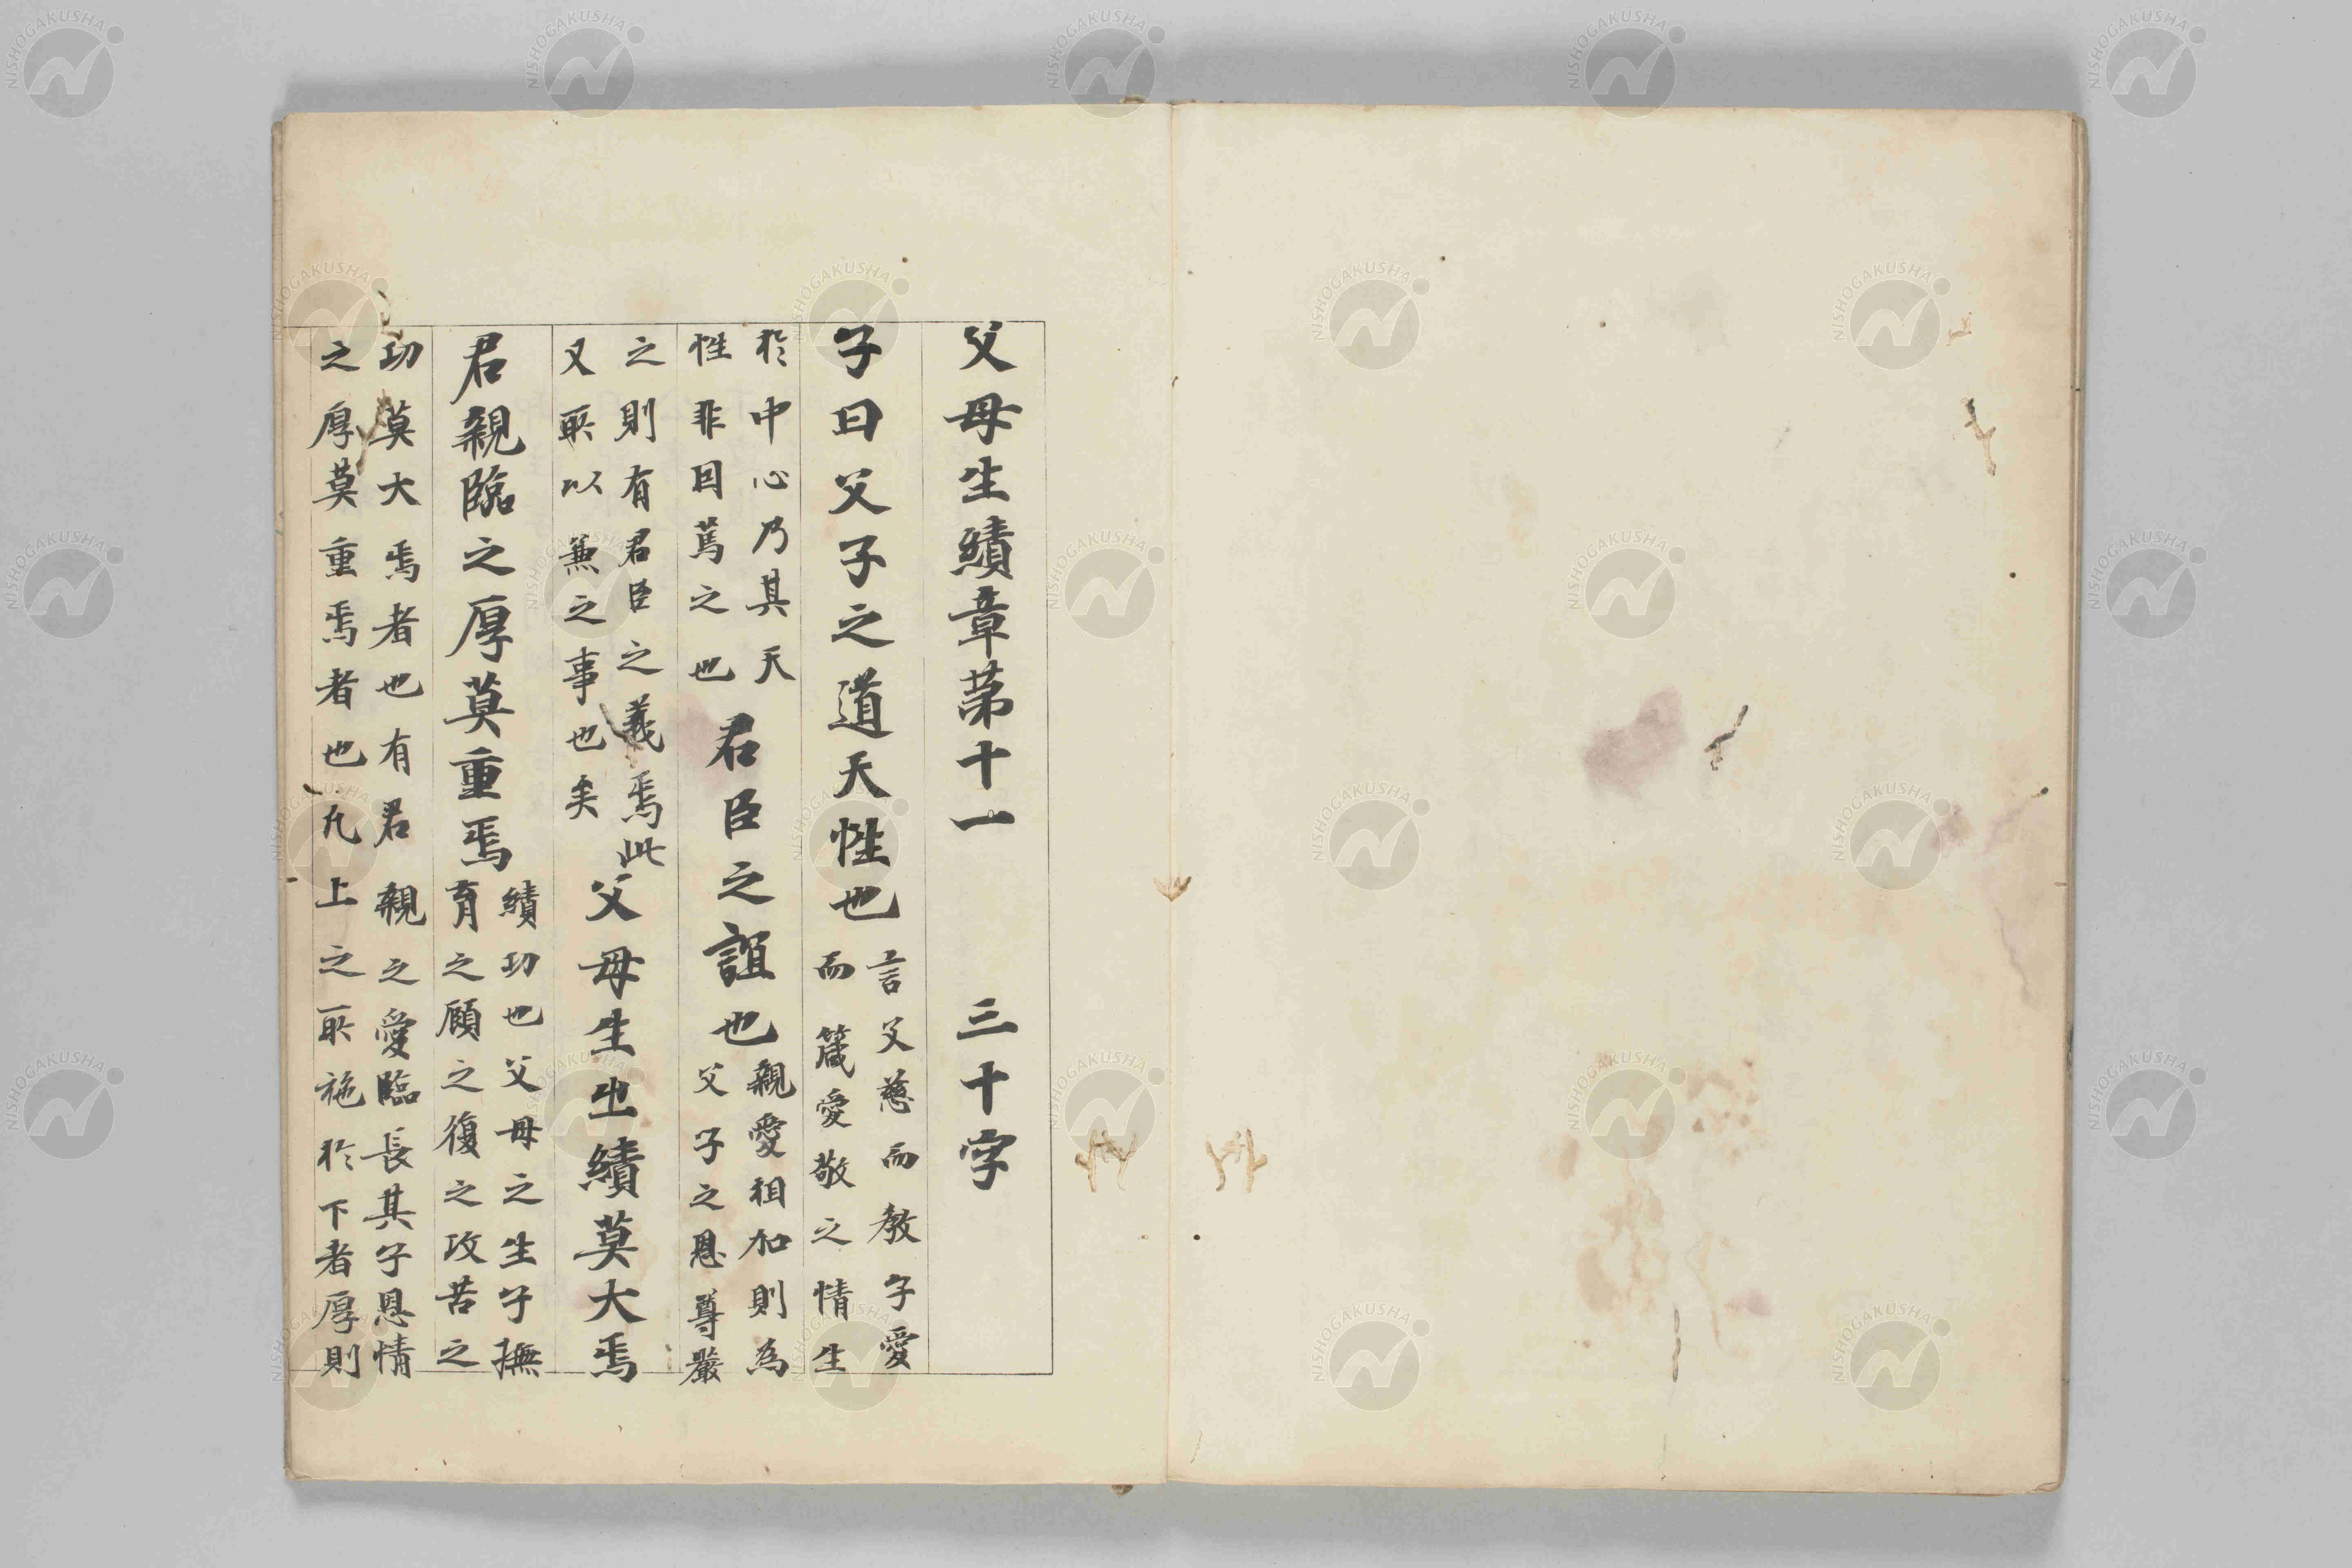 父母生績章第十一　三十字
子曰父子之道天性也
言父慈而教子愛
而箴愛敬之情生
於中心乃其天
性非因篤之也
君臣之誼也
親愛相加則為
父子之恩尊嚴
之則有君臣之義焉此
又所以兼之事也矣
父母生㞢績莫大焉
君親臨之厚莫重焉
績功也父母之生子撫
育之顧之復之攻苦之
功莫大焉者也有君親之愛臨長其子恩情
之厚莫重焉者也凡上之所施於下者厚則
NISHOGAKUSHA